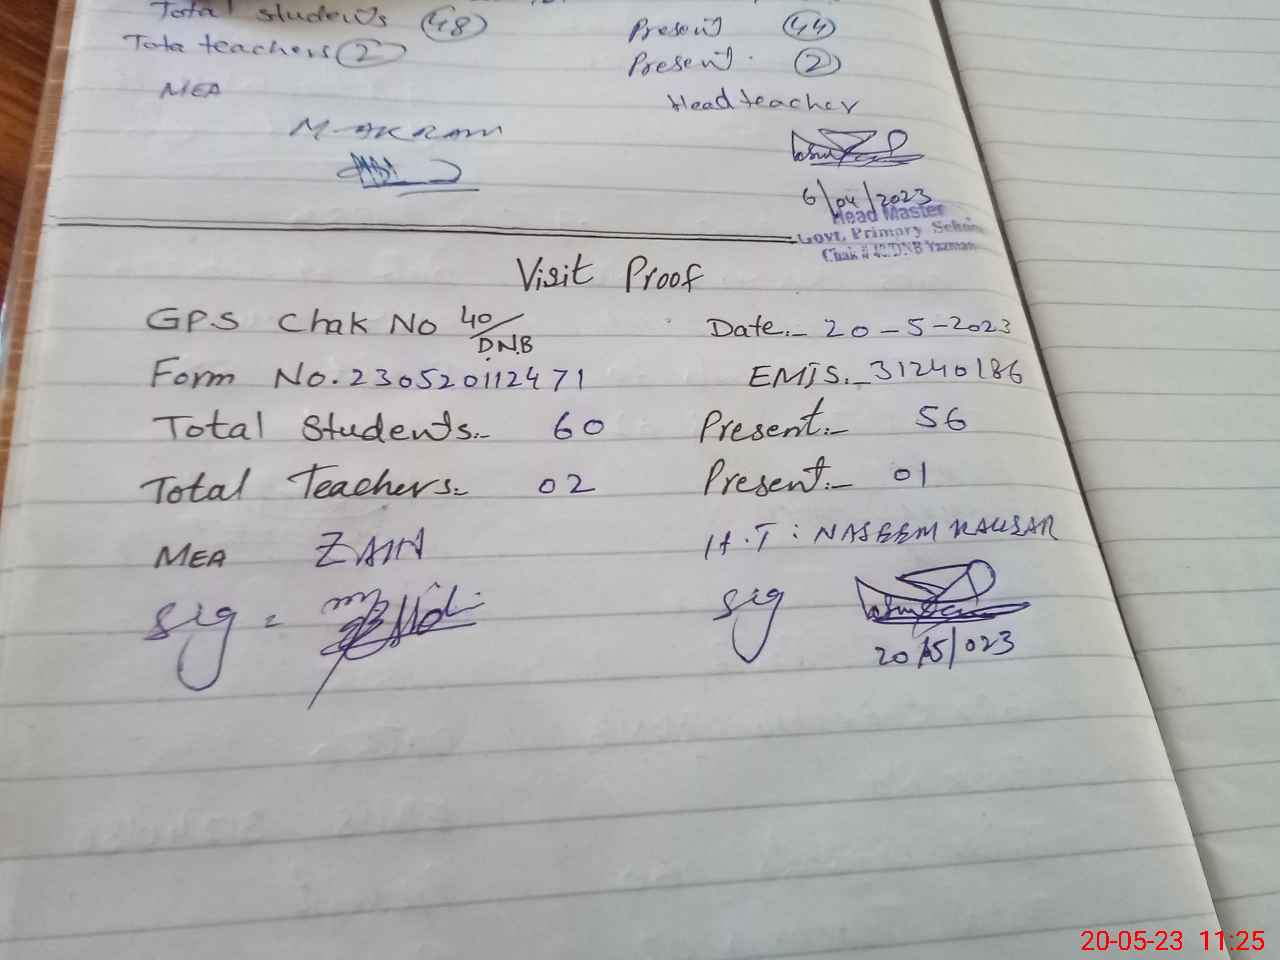 Total students 48 Present 44
Tota teachers 2 Present. 2
MEA Head teacher
M. AKRAM
6/04/2023
Head Master
Govt. Primary School
Chak # 42/DNB Yazman
Visit Proof
GP.S Chak No 40/DNB Date:- 20-5-2023
Form No. 230520112471 EMIS:- 31240186
Total Students:- 60 Present:- 56
Total Teachers:- 02 Present:- 01
MEA ZAIN H.T : NASEEM KAUSAR
Sig = Sig
20/5/023
20-05-23 11:25